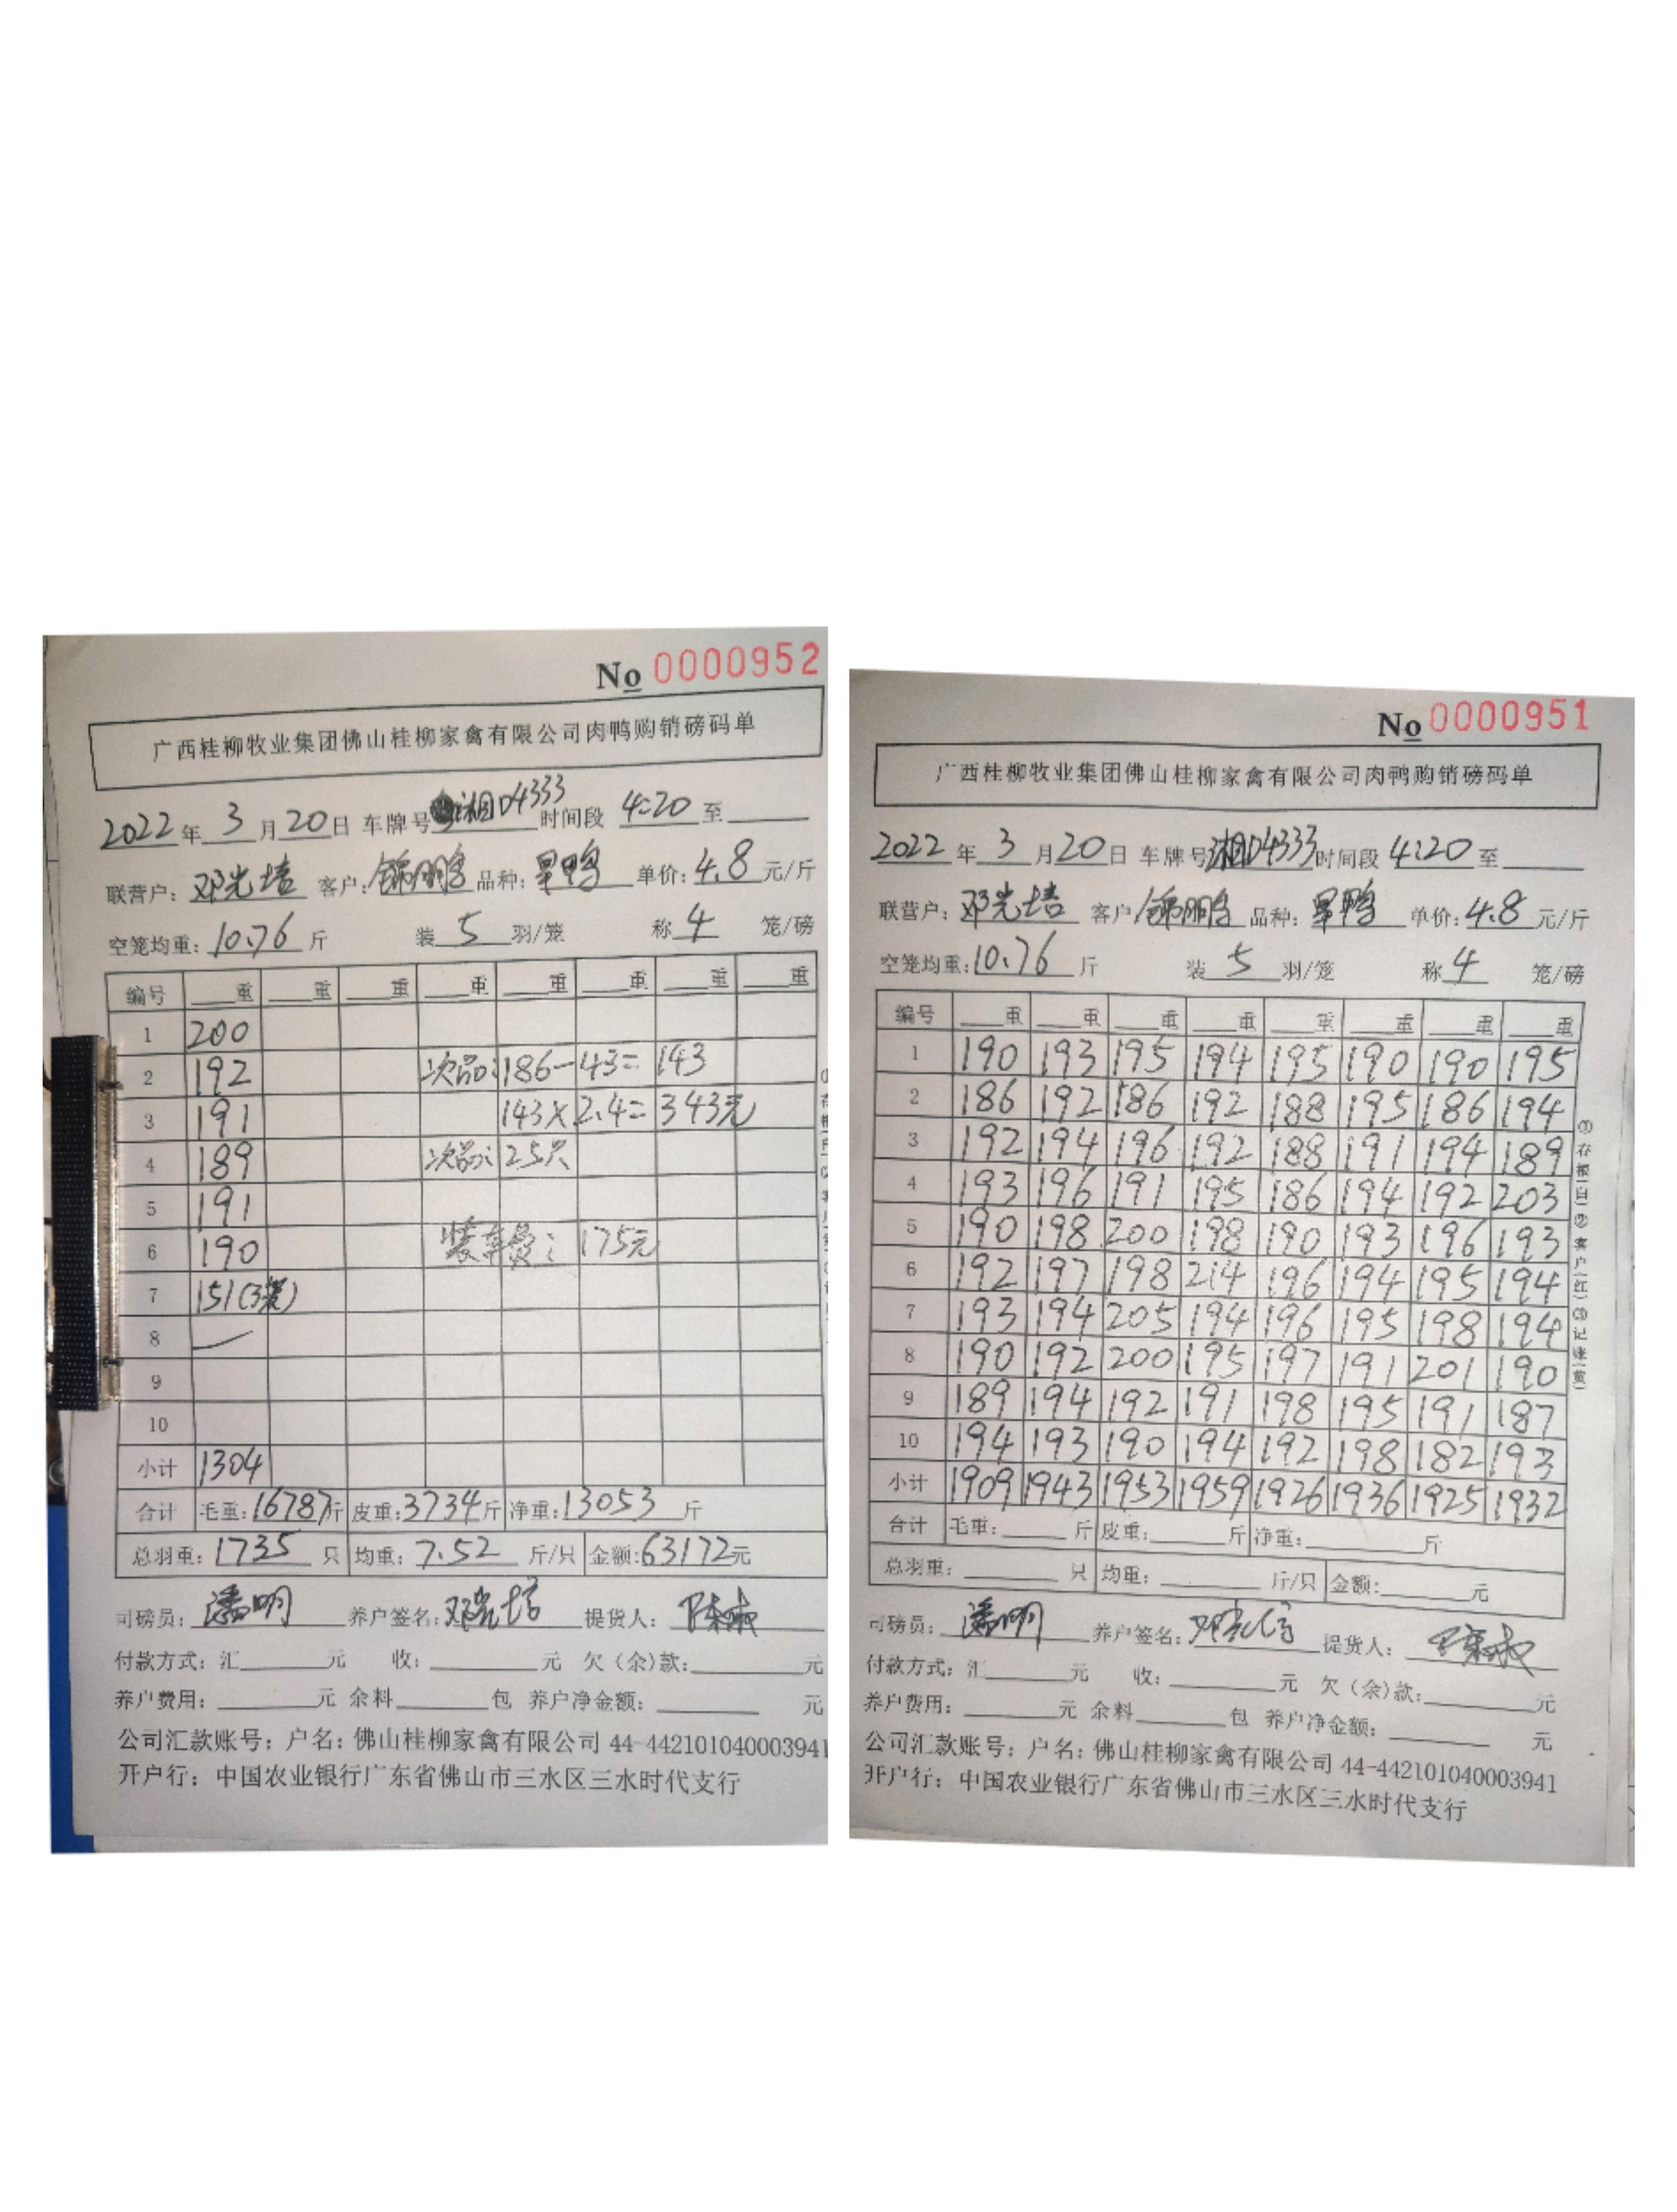 No 0000952
广西桂柳牧业集团佛山桂柳家禽有限公司肉鸭购销磅码单
2022年 3 月 20 日 车牌号 湘D4333 时间段 4:20 至
联营户: 邓光培 客户: 锦鹏 品种: 旱鸭 单价: 4.8 元/斤
空笼均重: 10.76 斤 装 5 羽/笼 称 4 笼/磅
编号 重 重 重 重 重 重 重 重
1 200
2 192 次品: 186-43= 143
3 191 143×2.4= 343元
4 189 次品: 25只
5 191
6 190 装车费: 175元
7 151(3笼)
8 —
9
10
小计 1304
合计 毛重: 16787斤 皮重: 3734斤 净重: 13053 斤
总羽重: 1735 只 均重: 7.52 斤/只 金额: 63172元
司磅员: 潘明 养户签名: 邓光培 提货人:
付款方式: 汇 元 收: 元 欠(余)款: 元
养户费用: 元 余料 包 养户净金额: 元
公司汇款账号: 户名: 佛山桂柳家禽有限公司 44-442101040003941
开户行: 中国农业银行广东省佛山市三水区三水时代支行
No 0000951
广西桂柳牧业集团佛山桂柳家禽有限公司肉鸭购销磅码单
2022 年 3 月 20 日 车牌号 湘D4333 时间段 4:20 至
联营户: 邓光培 客户 锦鹏 品种: 旱鸭 单价: 4.8 元/斤
空笼均重: 10.76 斤 装 5 羽/笼 称 4 笼/磅
编号 重 重 重 重 重 重 重 重
1 190 193 195 194 195 190 190 195
2 186 192 186 192 188 195 186 194
3 192 194 196 192 188 191 194 189
4 193 196 191 195 186 194 192 203
5 190 198 200 198 190 193 196 193
6 192 197 198 214 196 194 195 194
7 193 194 205 194 196 195 198 194
8 190 192 200 195 197 191 201 190
9 189 194 192 191 198 195 191 187
10 194 193 190 194 192 198 182 193
小计 1909 1943 1953 1959 1926 1936 1925 1932
合计 毛重: 斤 皮重: 斤 净重: 斤
总羽重: 只 均重: 斤/只 金额: 元
司磅员: 潘明 养户签名: 邓光培 提货人:
付款方式: 汇 元 收: 元 欠(余)款: 元
养户费用: 元 余料 包 养户净金额: 元
公司汇款账号: 户名: 佛山桂柳家禽有限公司 44-442101040003941
开户行: 中国农业银行广东省佛山市三水区三水时代支行
①存根(白)②客户(红)③记账(黄)